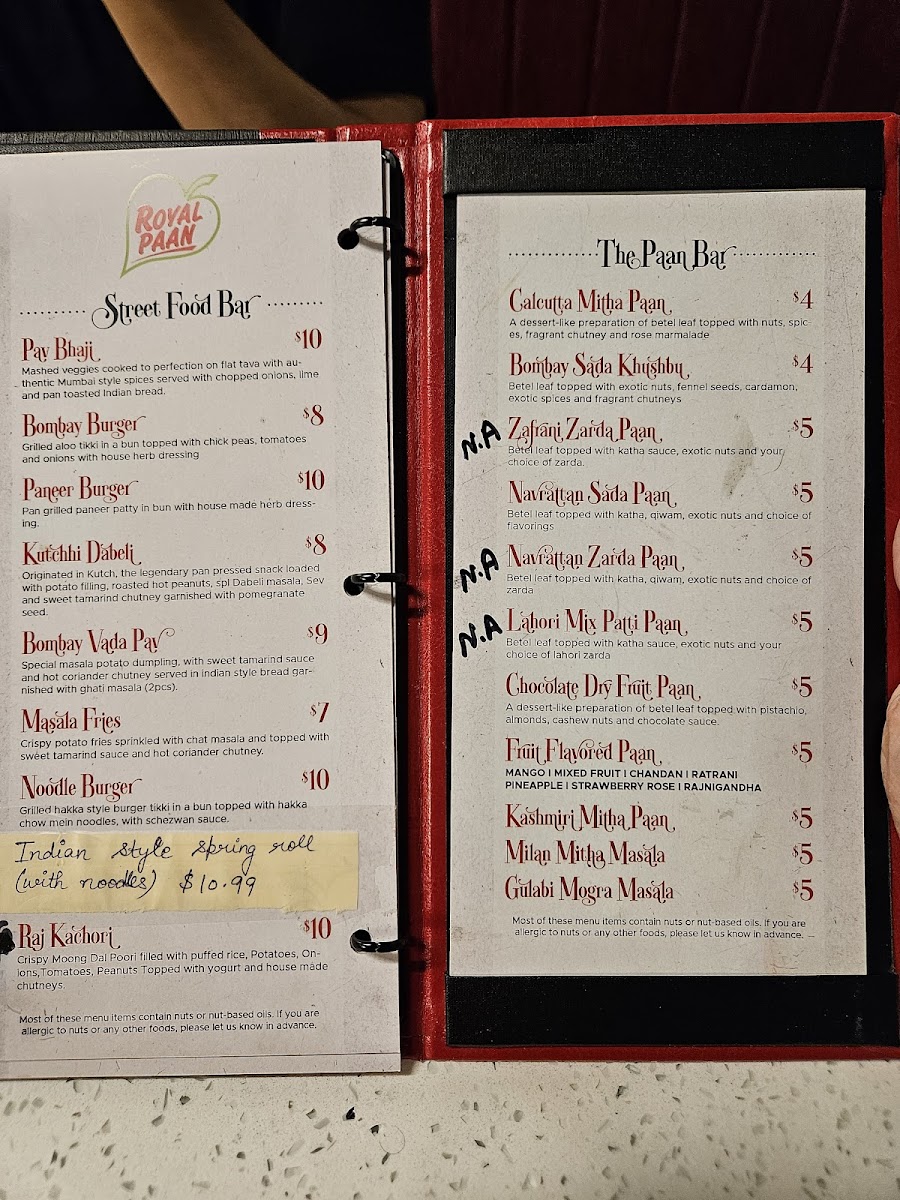 ROYAL
PAAN
Street Food Bar
Pav Bhaji $10
Mashed veggies cooked to perfection on flat tava with au-
thentic Mumbai style spices served with chopped onions, lime
and pan toasted Indian bread.
Bombay Burger $8
Grilled aloo tikki in a bun topped with chick peas, tomatoes
and onions with house herb dressing
Paneer Burger $10
Pan grilled paneer patty in bun with house made herb dress-
ing.
Kutchhi Dabeli $8
Originated in Kutch, the legendary pan pressed snack loaded
with potato filling, roasted hot peanuts, spl Dabeli masala, Sev
and sweet tamarind chutney garnished with pomegranate
seed.
Bombay Vada Pav $9
Special masala potato dumpling, with sweet tamarind sauce
and hot coriander chutney served in Indian style bread gar-
nished with ghati masala (2pcs).
Masala Fries $7
Crispy potato fries sprinkled with chat masala and topped with
sweet tamarind sauce and hot coriander chutney.
Noodle Burger $10
Grilled hakka style burger tikki in a bun topped with hakka
chow mein noodles, with schezwan sauce.
Indian style spring roll
(with noodles) $10.99
Raj Kachori $10
Crispy Moong Dal Poori filled with puffed rice, Potatoes, On-
ions,Tomatoes, Peanuts Topped with yogurt and house made
chutneys.
Most of these menu items contain nuts or nut-based oils. If you are
allergic to nuts or any other foods, please let us know in advance.
The Paan Bar
Calcutta Mitha Paan $4
A dessert-like preparation of betel leaf topped with nuts, spic-
es, fragrant chutney and rose marmalade
Bombay Sada Khushbu $4
Betel leaf topped with exotic nuts, fennel seeds, cardamon,
exotic spices and fragrant chutneys
N.A Zafrani Zarda Paan $5
Betel leaf topped with katha sauce, exotic nuts and your
choice of zarda.
Navrattan Sada Paan $5
Betel leaf topped with katha, qiwam, exotic nuts and choice of
flavorings
N.A Navrattan Zarda Paan $5
Betel leaf topped with katha, qiwam, exotic nuts and choice of
zarda
N.A Lahori Mix Patti Paan $5
Betel leaf topped with katha sauce, exotic nuts and your
choice of lahori zarda
Chocolate Dry Fruit Paan $5
A dessert-like preparation of betel leaf topped with pistachio,
almonds, cashew nuts and chocolate sauce.
Fruit Flavored Paan $5
MANGO | MIXED FRUIT | CHANDAN | RATRANI
PINEAPPLE | STRAWBERRY ROSE | RAJNIGANDHA
Kashmiri Mitha Paan $5
Milan Mitha Masala $5
Gulabi Mogra Masala $5
Most of these menu items contain nuts or nut-based oils. If you are
allergic to nuts or any other foods, please let us know in advance.